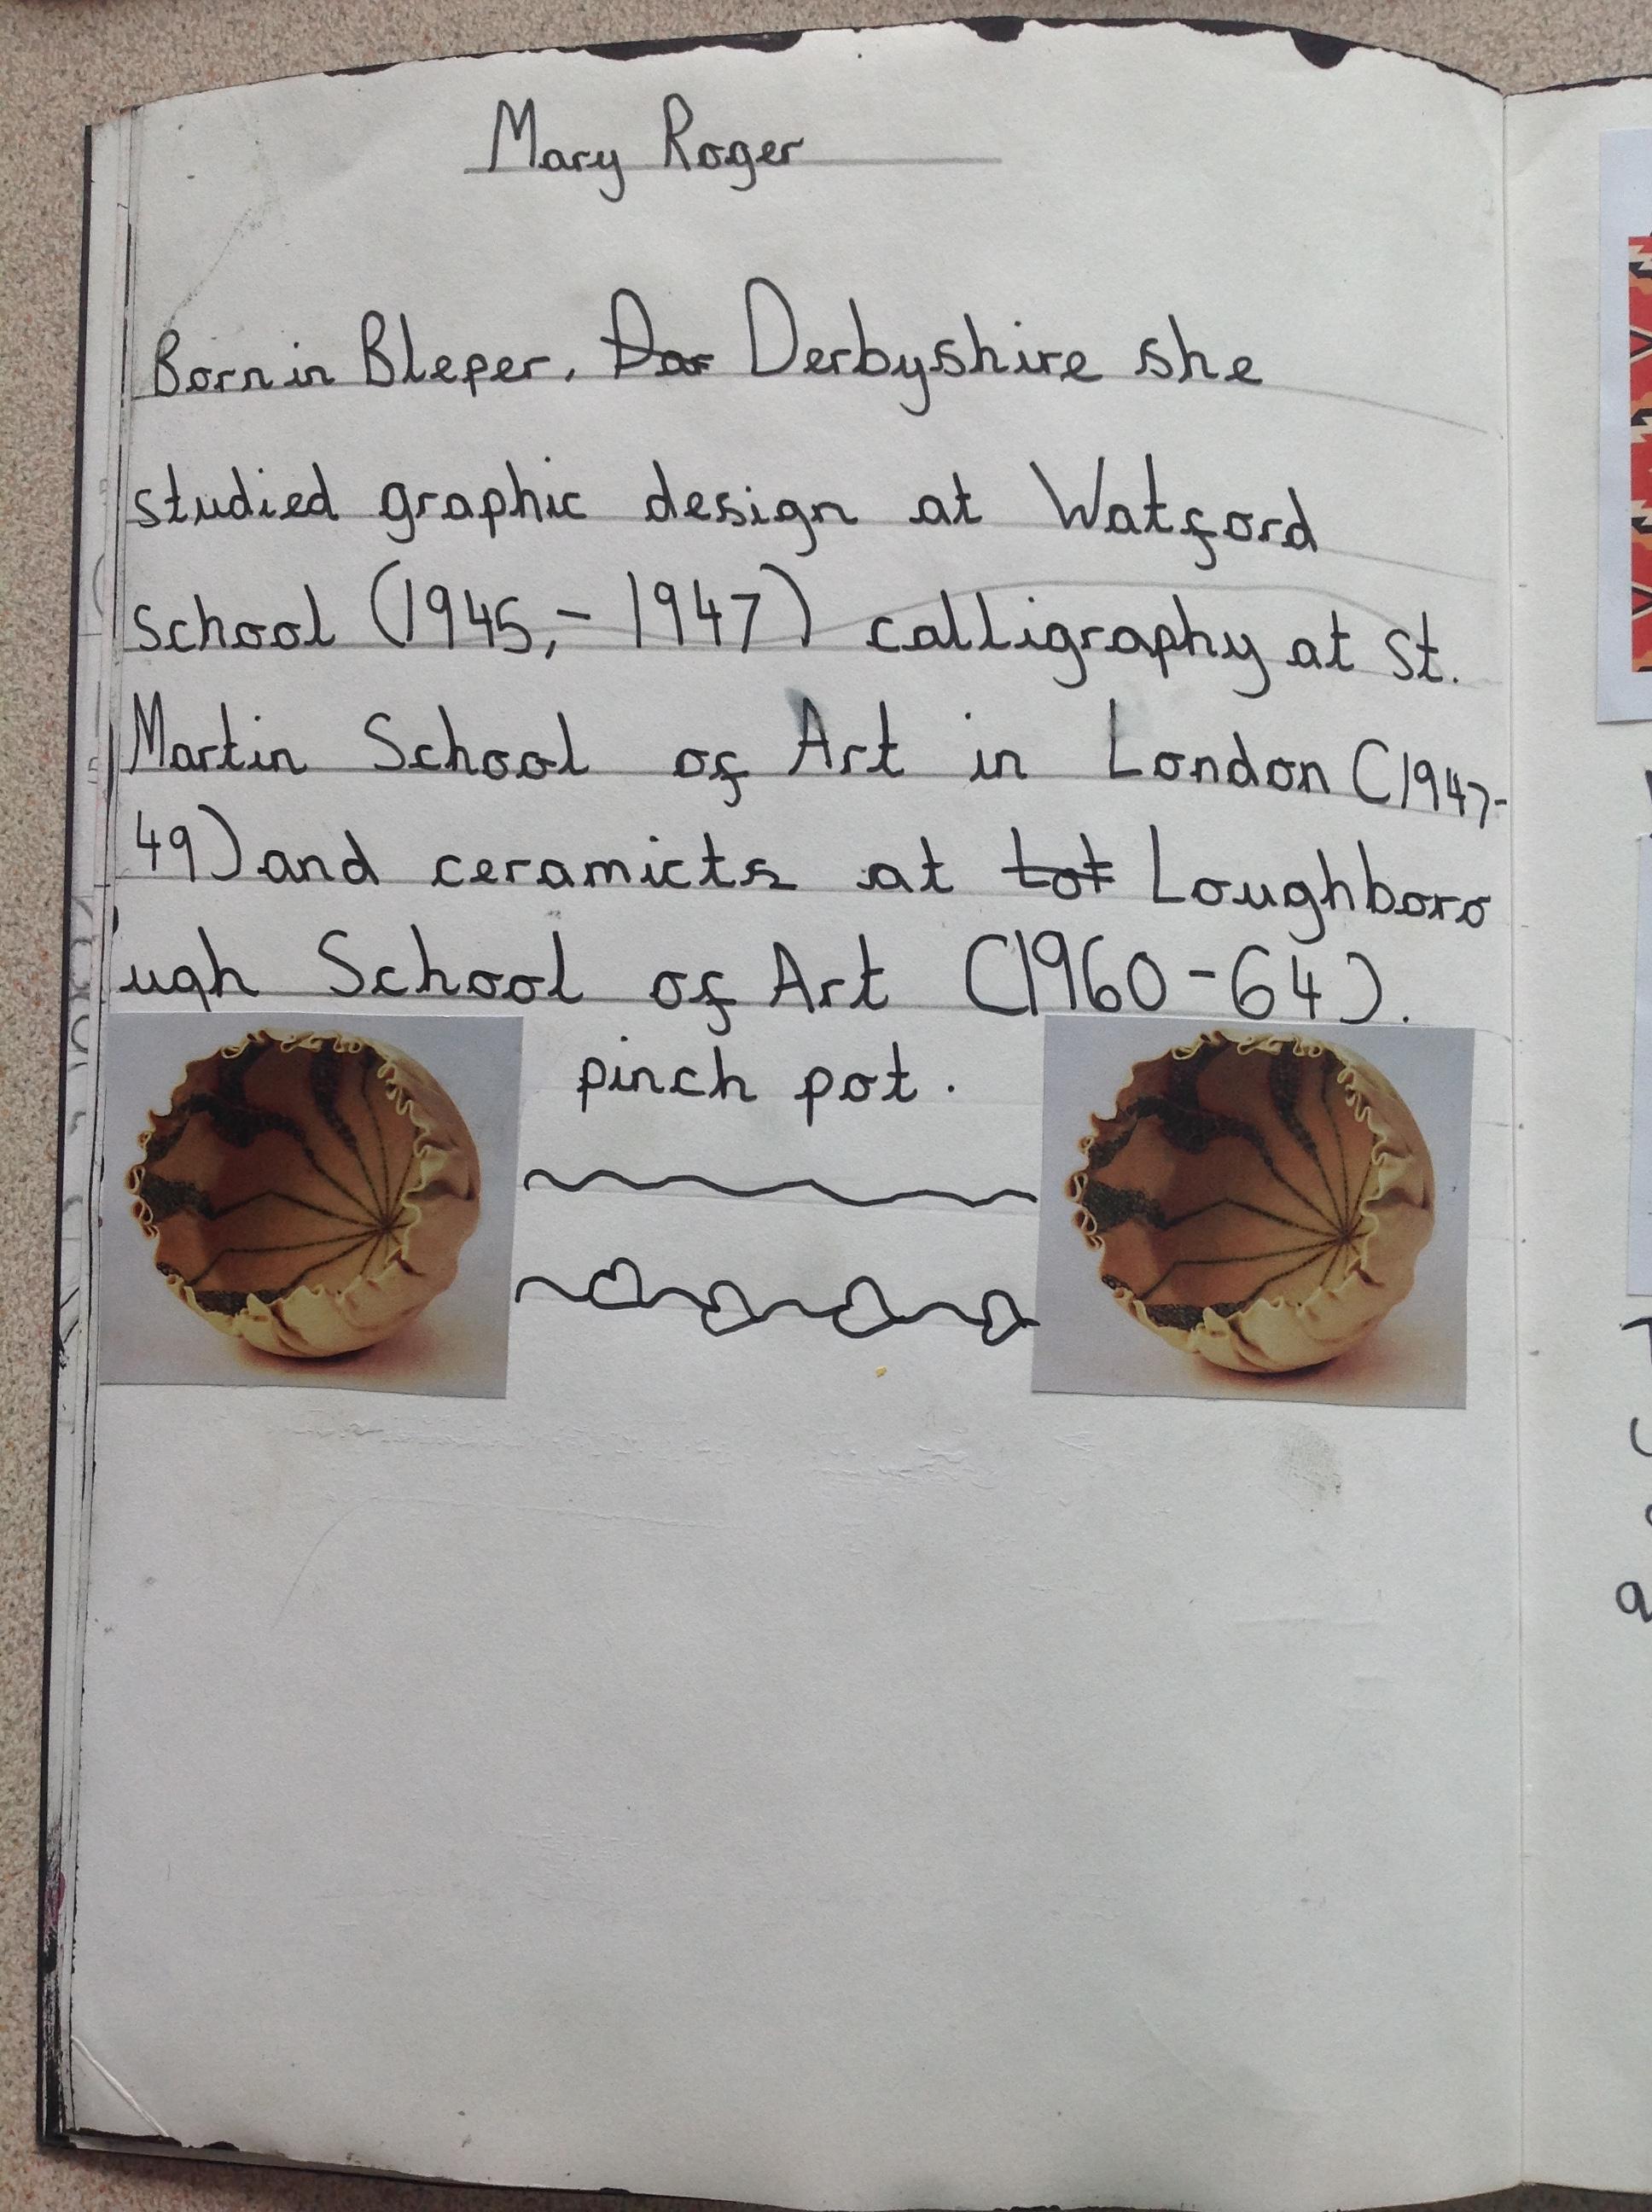 Mary Roger
Born in Bleper, Dar Derbyshire she
studied graphic design at Watford
school (1945,- 1947) calligraphy at st.
Martin School of Art in London (1947-
49) and ceramicts at tot Loughboro
ugh School of Art (1960-64).
pinch pot.